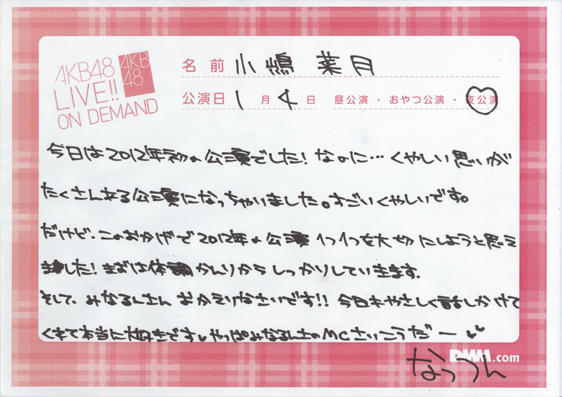 AKB48
LIVE!!
ON DEMAND
AKB
48
名前 小嶋 菜月
公演日 1月4日 昼公演・おやつ公演・夜公演
今日は2012年初の公演でした！なのに…くやしい思いが
たくさん残る公演になっちゃいました。すごいくやしいです。
だけど、このおかげで2012年の公演1つ1つを大切にしようと思え
ました！まずは体調かんりからしっかりしていきます。
そして、みなるんさん おかえりなさいです!! 今日もやさしく話しかけて
くれて本当に大好きです♥やっぱみなるんさんのMCさいこうだー♥♥
なっつん
DMM.com